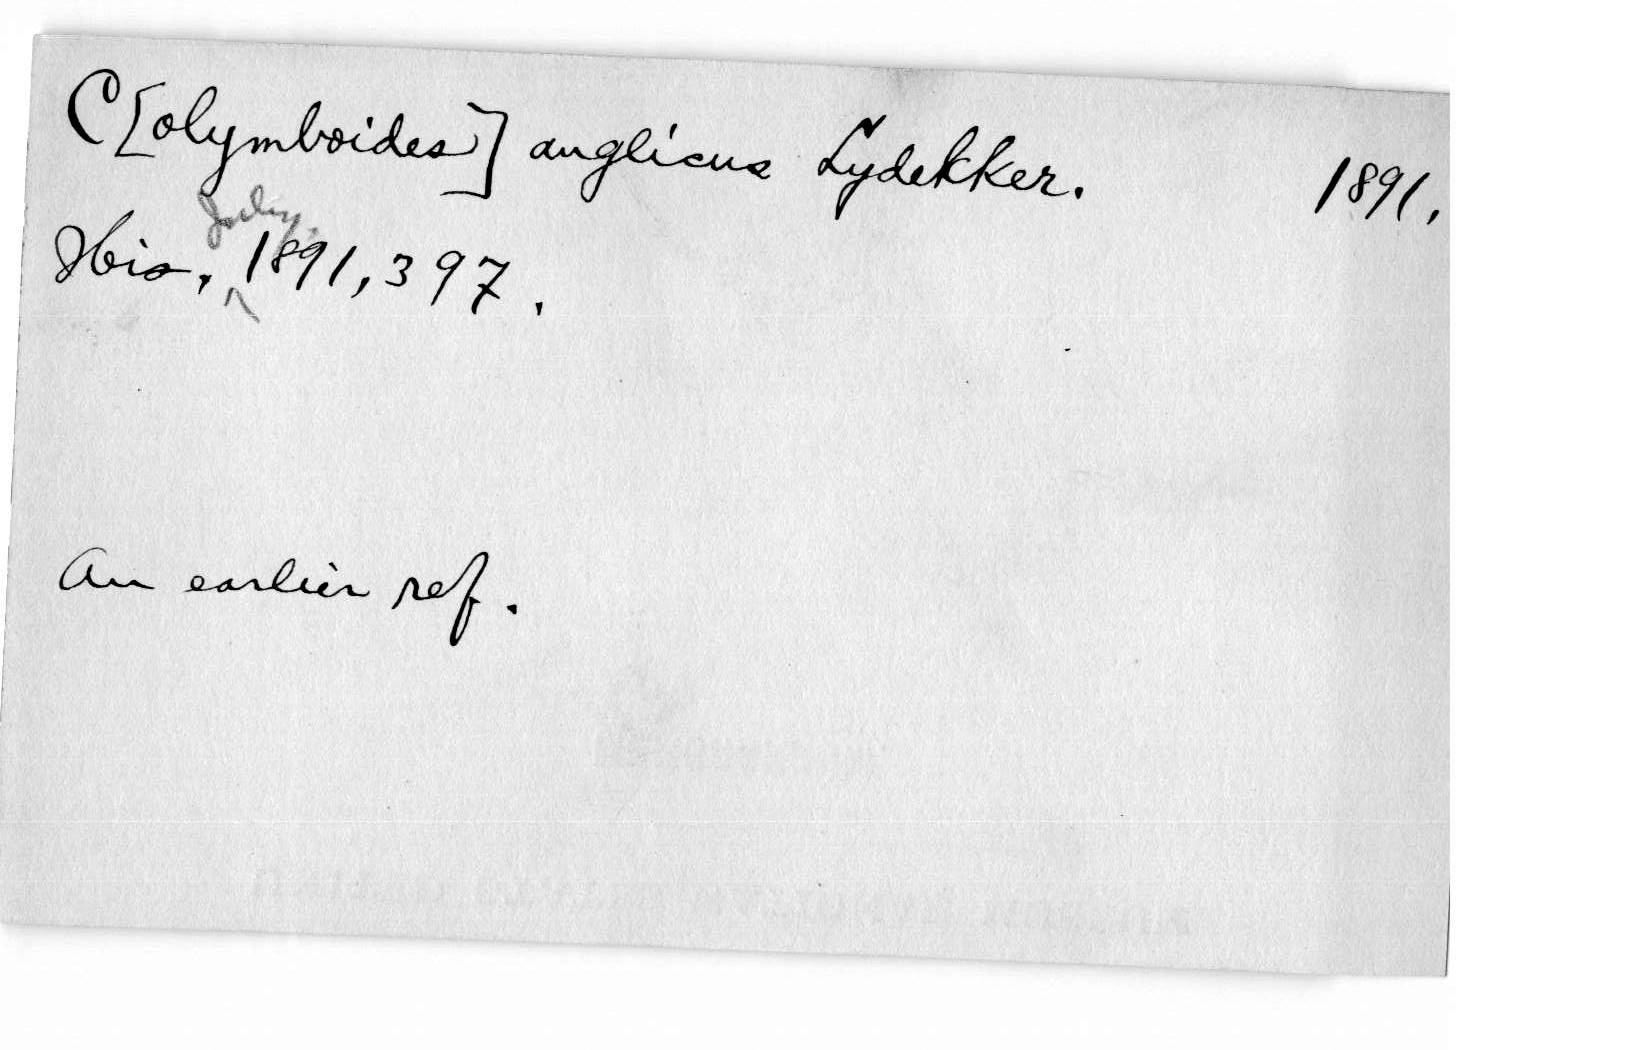 C[olymboides] anglicus Lydekker. 1891.
Ibis, July, 1891, 397.
An earlier ref.